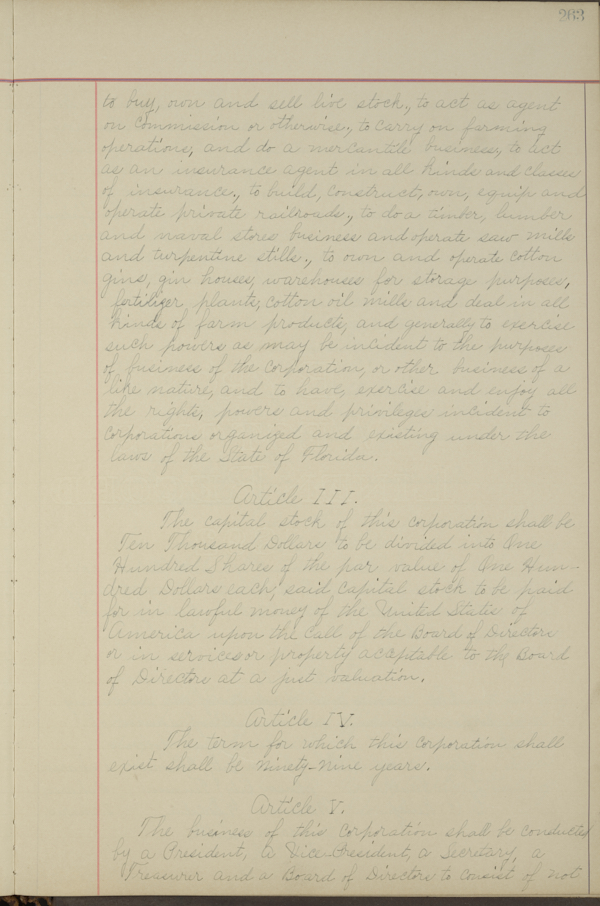 263
to buy, own and sell live stock, to act as agent
on commission or otherwise, to carry on farming
operations, and do a mercantile business, to act
as an insurance agent in all kinds and classes
of insurance, to build, construct, own, equip and
operate private railroads, to do a timber, lumber
and naval stores business and operate saw mills
and turpentine stills, to own and operate cotton
gins, gin houses, warehouses for storage purposes,
fertilizer plants, cotton oil mills and deal in all
kinds of farm products, and generally to exercise
such powers as may be incident to the purposes
of business of the corporation, or other business of a
like nature, and to have, exercise and enjoy all
the rights, powers and privileges incident to
corporations organized and existing under the
laws of the State of Florida.
Article III.
The capital stock of this corporation shall be
Ten Thousand Dollars to be divided into One
Hundred Shares of the par value of One Hun-
dred Dollars each, said capital stock to be paid
for in lawful money of the United States of
America upon the call of the Board of Directors
or in services or property acceptable to the Board
of Directors at a just valuation.
Article IV.
The term for which this corporation shall
exist shall be Ninety-Nine years.
Article V.
The business of this corporation shall be conducted
by a President, a Vice-President, a Secretary, a
Treasurer and a Board of Directors to consist of not